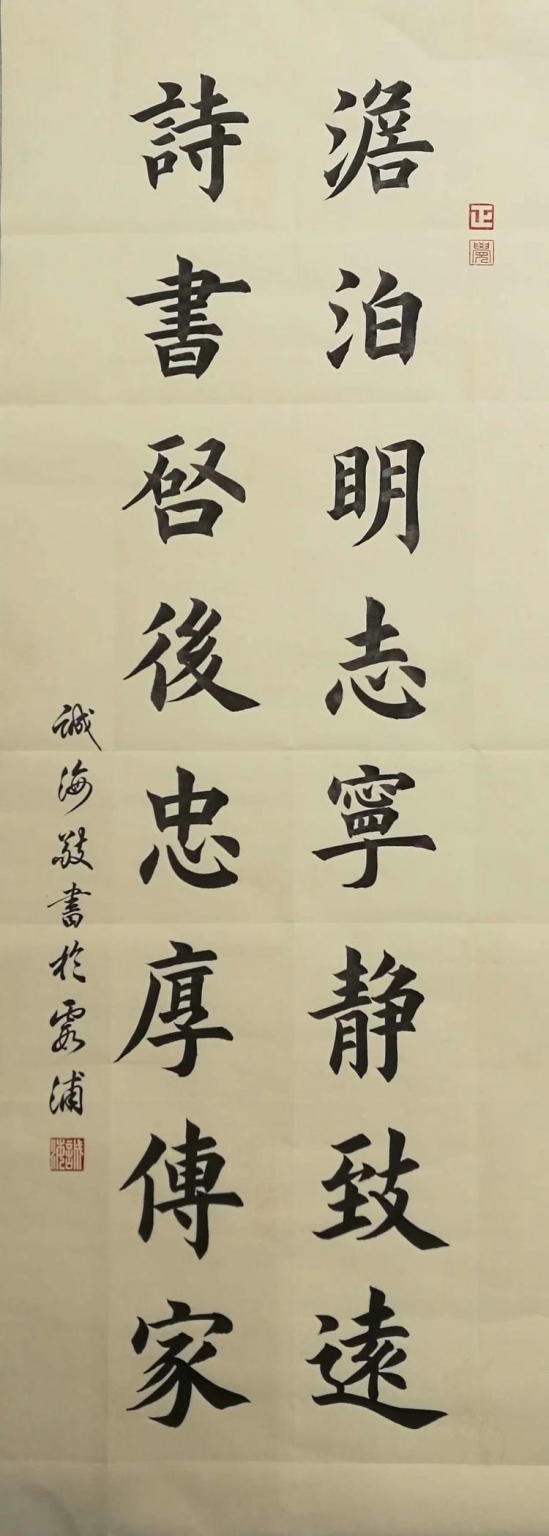 澹泊明志寧静致遠
詩書啓後忠厚傳家
誠海敬書於霞浦
正
覺
誠海